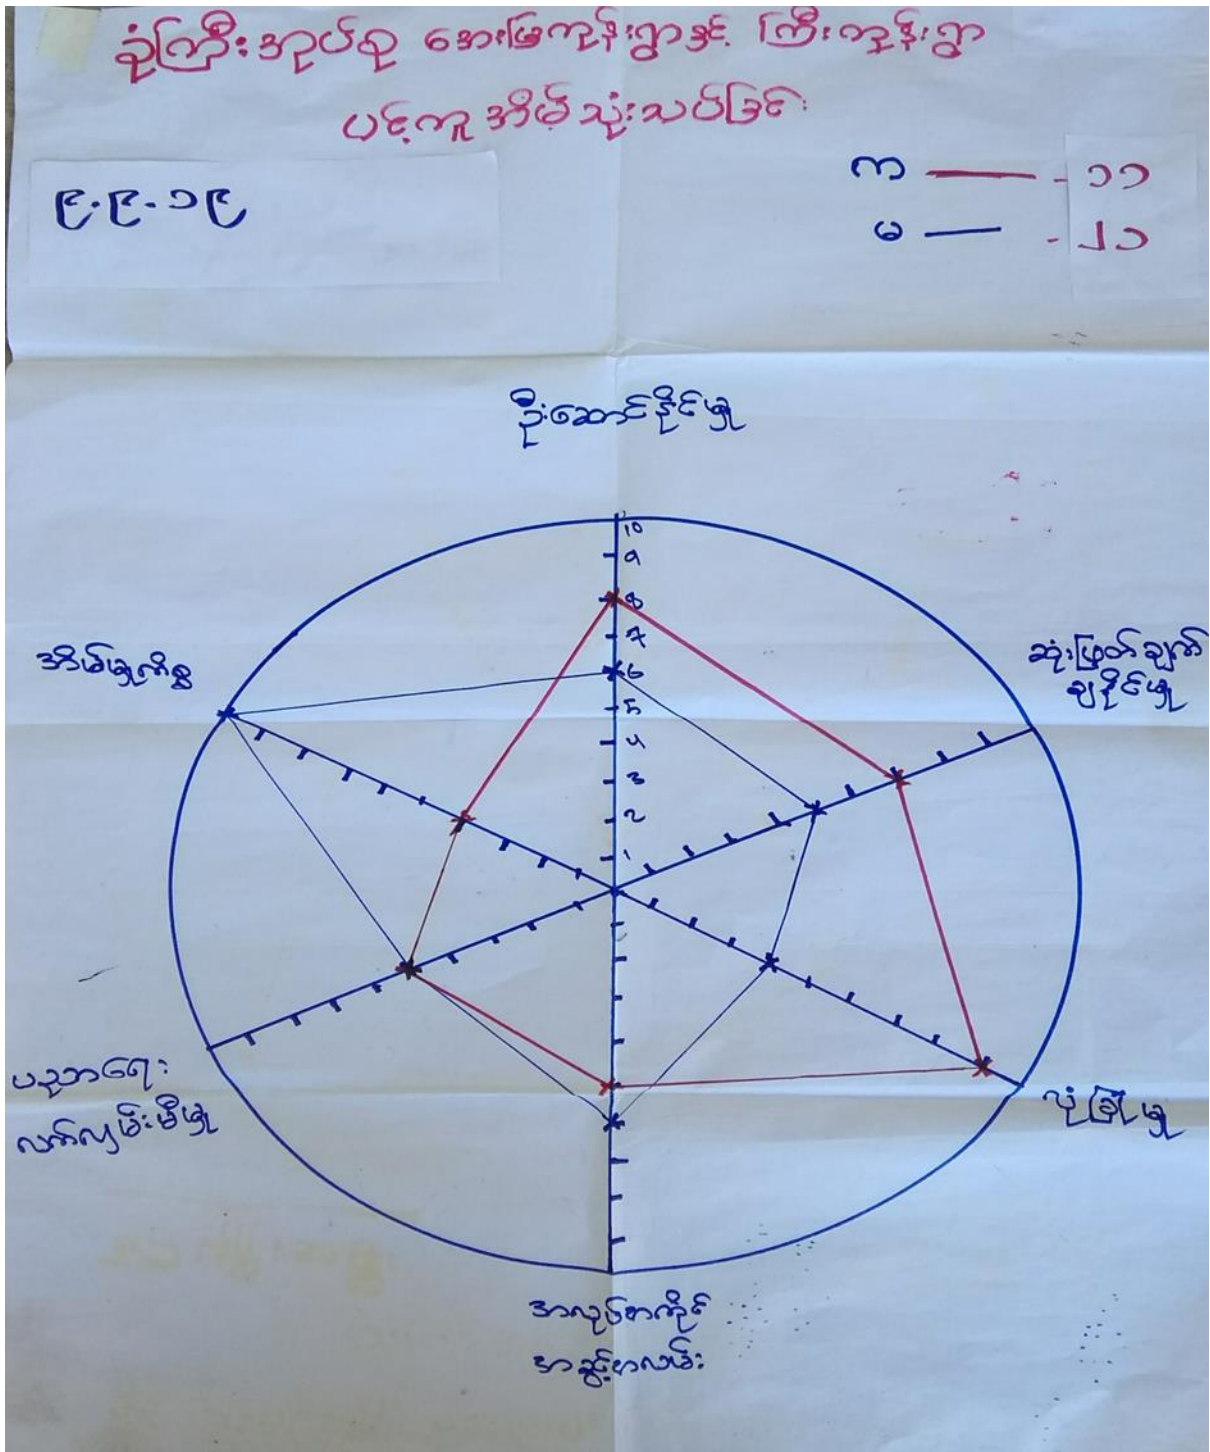 ခုံကြီးအုပ်စု အေးမြကုန်းရွာနှင့် ကြီးကုန်းရွာ
ပင့်ကူအိမ်သုံးသပ်ခြင်း
၉.၉.၁၉
က — - ၁၁
မ — - ၂၁
ဦးဆောင်နိုင်မှု
10
9
8
7
6
5
4
3
2
1
ဆုံးဖြတ်ချက်
ချနိုင်မှု
အိမ်မှုကိစ္စ
ပညာရေး
လက်လှမ်းမီမှု
လုံခြုံမှု
အလုပ်အကိုင်
အခွင့်အလမ်း